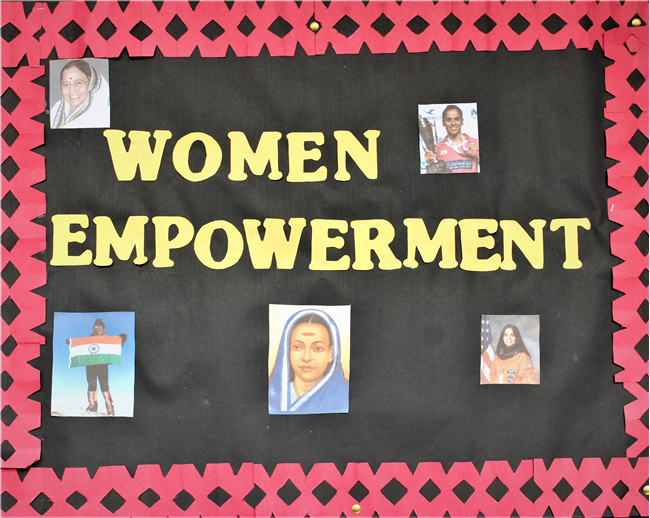 WOMEN
EMPOWERMENT